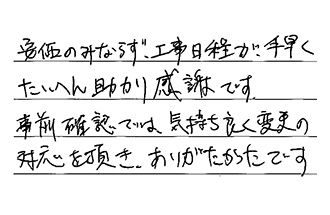 安価のみならず、工事日程が、手早く
たいへん助かり感謝です。
事前確認では、気持ち良く変更の
対応を頂き、ありがたかったです